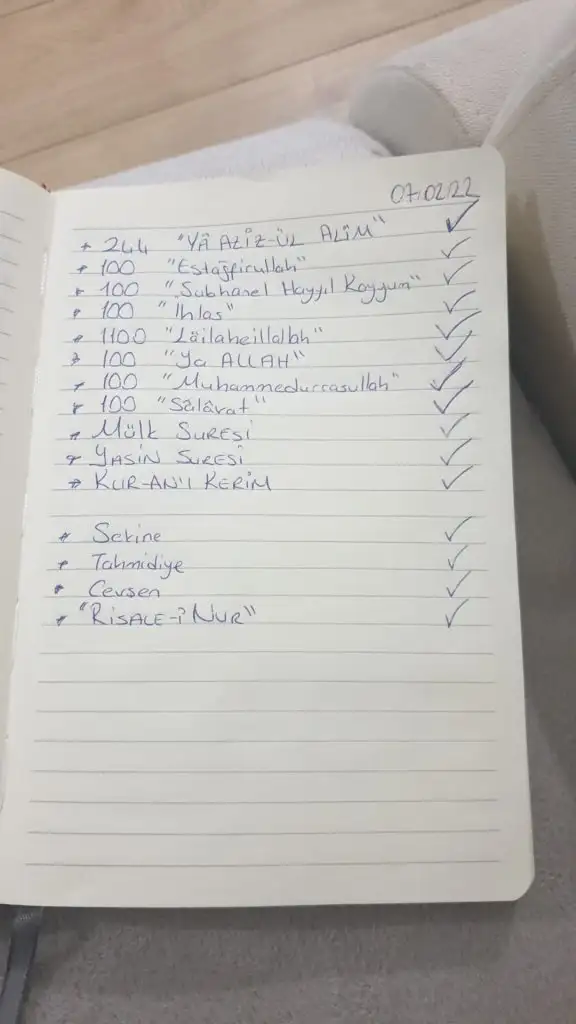 07.02.22
* 244 "YÂ AZÎZ-ÜL ALÎM" ✓
* 100 "Estağfirullah" ✓
* 100 "Subhanel Hayyıl Kayyum" ✓
* 100 "İhlas" ✓
* 1100 "Lâilaheillallah" ✓
* 100 "Ya ALLAH" ✓
* 100 "Muhammedurrasullah" ✓
* 100 "Sâlâvat" ✓
* MÜLK SURESİ ✓
* YASİN SURESİ ✓
* KUR-AN'I KERİM ✓
* Sekine ✓
* Tahmidiye ✓
* Cevşen ✓
* "RİSALE-İ NUR" ✓